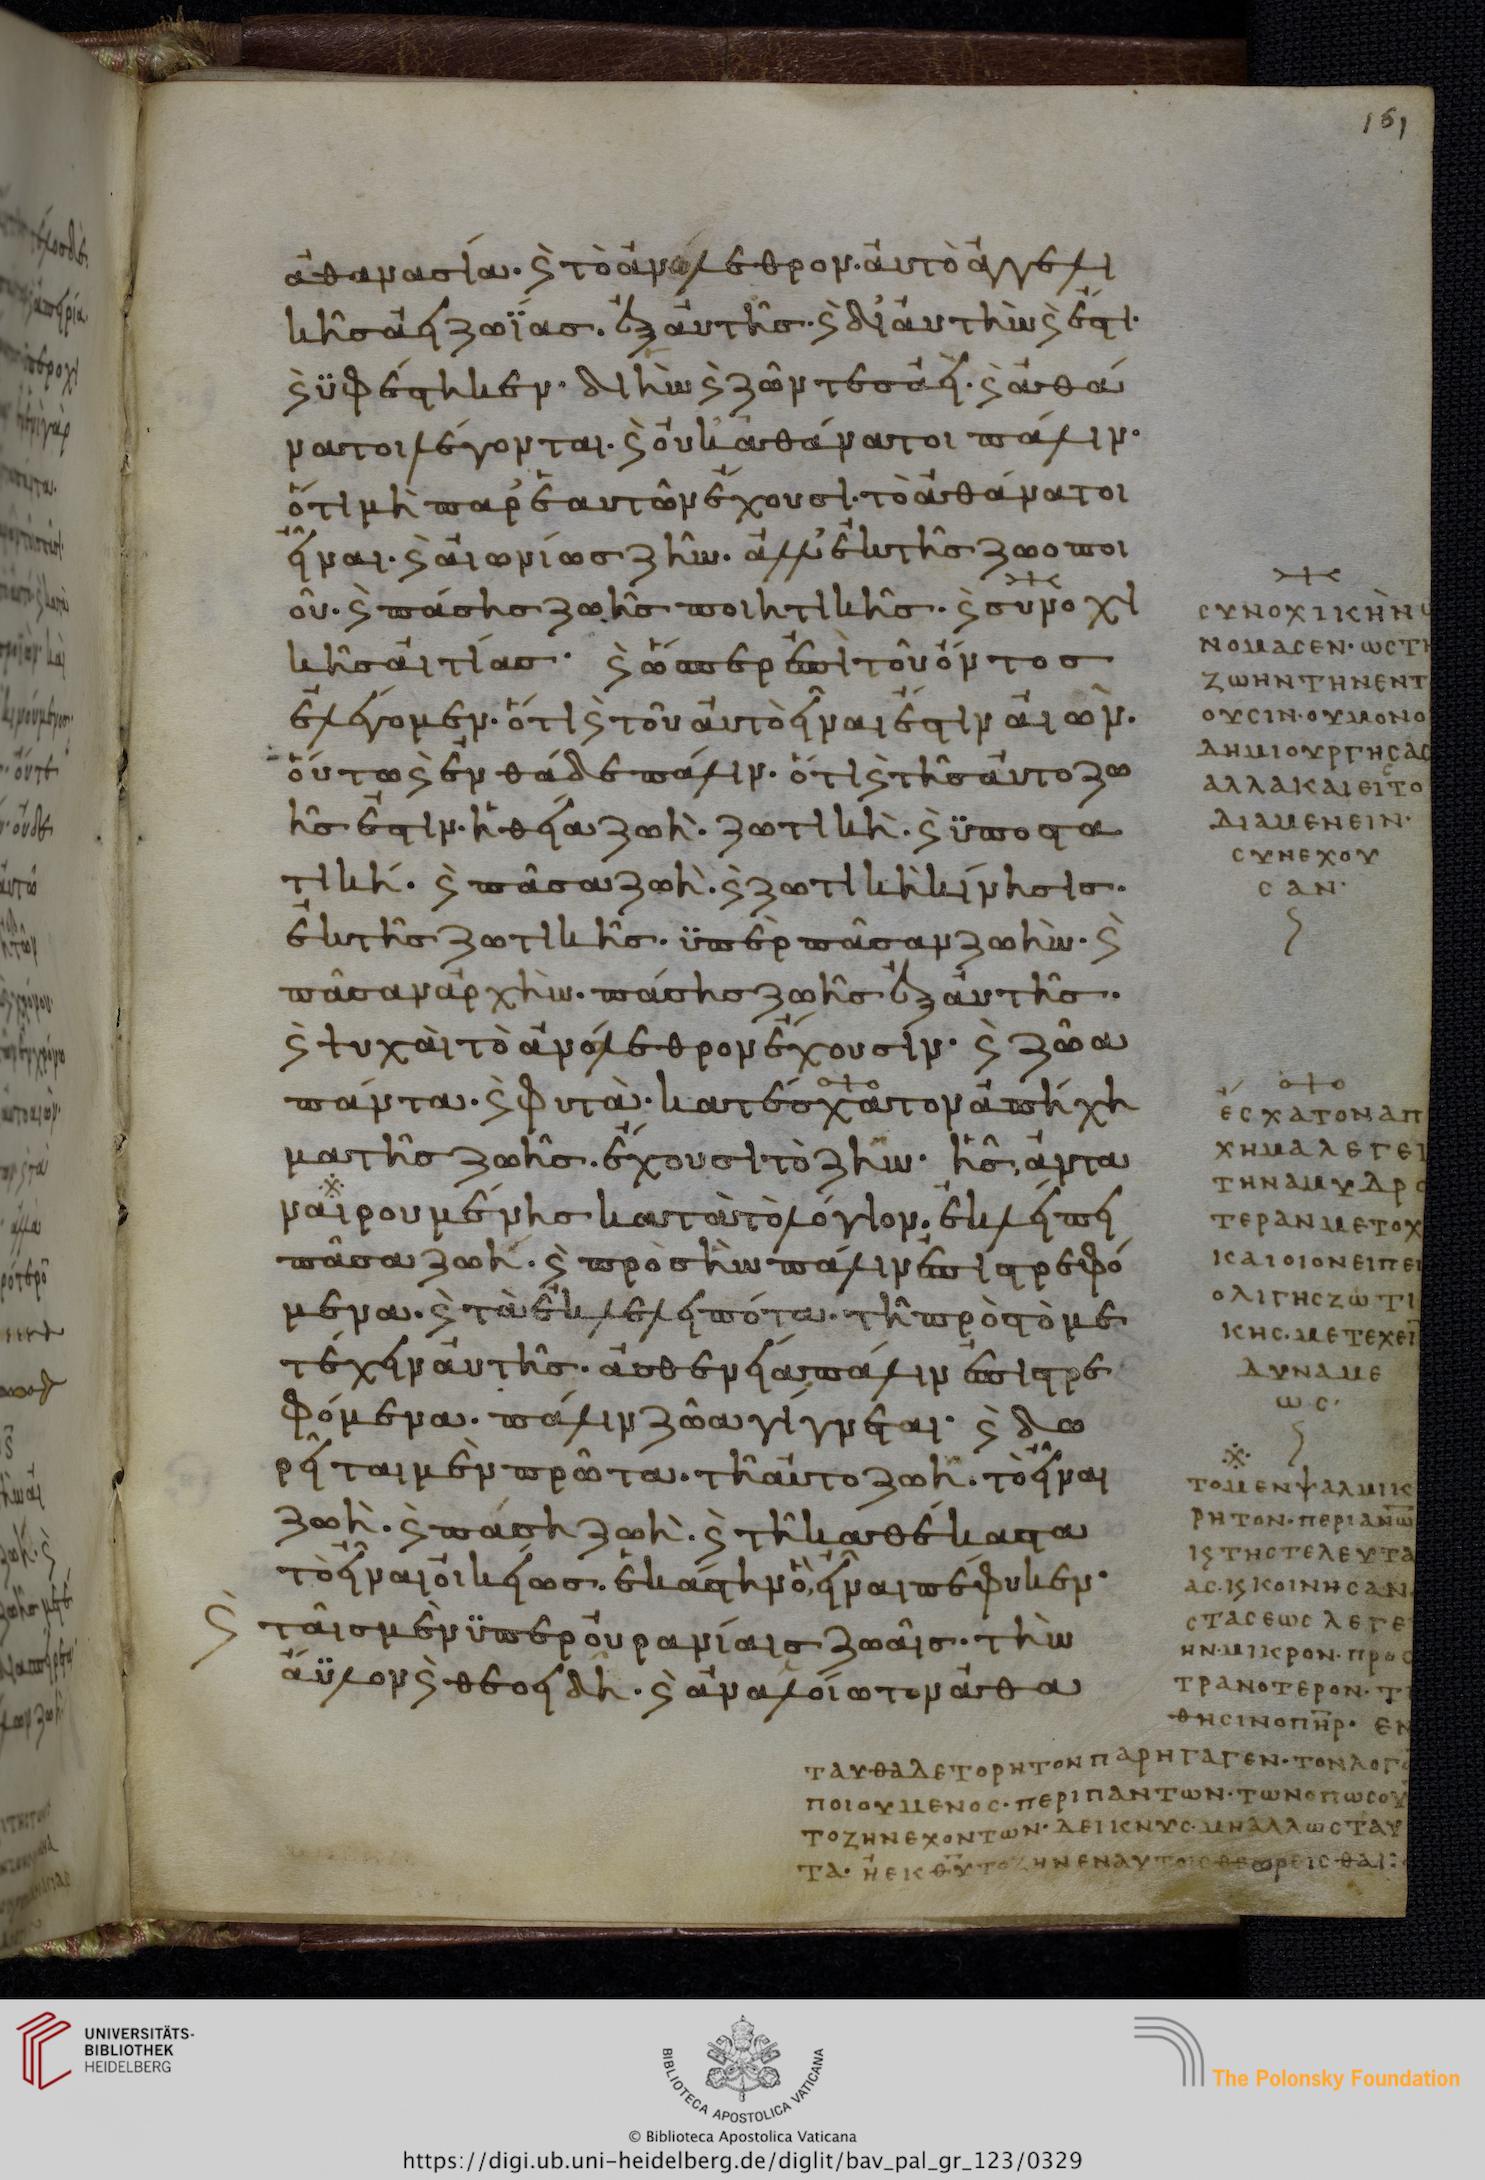 161
ἀθανασία. ϗ τὸ ἀνώλεθρον. ἀυτὸ ἀγγελι
κῆσ ἀειζωΐασ. ἐξ ἀυτῆσ. ϗ δι' ἀυτὴν ϗ ἔστι.
ϗ ϋφέστηκεν. δι ἣν ϗ ζῶντεσ ἀεὶ. ϗ ἀθά
νατοι λέγονται. ϗ ὀυκ ἀθάνατοι πάλιν.
ὅτι μὴ παρ' ἑαυτῶν ἔχουσι. τὸ ἀθάνατοι
εἶναι. ϗ ἀιωνίωσ ζῆν. ἀλλ' ἐκ τῆσ ζωοποι
οῦ. ϗ πάσησ ζωῆσ ποιητικῆσ. ϗ συνοχι
κῆσ ἀιτίασ. ϗ ὥσπερ ἐπὶ τοῦ ὄντοσ
ἐλέγομεν. ὅτι ϗ τοῦ ἀυτὸ εἶναι ἔστιν ἀιὼν.
ὅυτω ϗ ἐνθάδε πάλιν. ὅτι ϗ τῆσ ἀυτοζω
ῆσ ἐστιν. ἡ θεία ζωὴ. ζωτικὴ. ϗ ϋποστα
τική. ϗ πᾶσα ζωὴ. ϗ ζωτικὴ κίνησισ.
ἐκ τῆσ ζωτικῆσ. ϋπὲρ πᾶσαν ζωὴν. ϗ
πᾶσαν ἀρχὴν. πάσησ ζωῆσ ἐξ ἀυτῆσ.
ϗ ψυχὰι τὸ ἀνόλεθρον ἔχουσίν. ϗ ζῶα
πάντα. ϗ φυτὰ. κατ ἔσχατον ἀπήχη
μα τῆσ ζωῆσ. ἔχουσι τὸ ζῆν. ἧσ, ἀντα
ναιρουμένησ κατὰ τὸ λόγιον. ἐκλείπει
πᾶσα ζωή. ϗ πρὸσ ἣν πάλιν ἐπιστρεφό
μενα. ϗ τὰ ἐκλελειπότα. τῆ πρὸσ τὸ με
τέχειν ἀυτῆσ. ἀσθενεία πάλιν ἐπιστρε
φόμενα. πάλιν ζῶα γίγνεται. ϗ δω
ρεῖται μὲν πρῶτα. τῆ ἀυτοζωῆ. τὸ εἶναι
ζωὴ. ϗ πάση ζωὴ. ϗ τῆ καθέκαστα
τὸ εἶναι ὀικείωσ. ἑκάστην ὃ, εἶναι πέφυκεν.
ϗ ταῖσ μὲν ϋπερουρανίαισ ζωᾶισ. τὴν
ἄϋλον ϗ θεοειδῆ. ϗ ἀναλοίωτον ἀθα
ϲυνοχικὴν ω
νομαϲεν. ωϲ τη
ζωην την εν τ
ουϲιν. ου μονο
δημιουργηϲαϲ
αλλα και ειϲ το
διαμενειν.
ϲυνεχου
ϲαν.
ἔϲχατον απ
χημα λεγει
την αμυδρο
τεραν μετοχ
και οιον ειπει
ολιγηϲ ζωτι
κηϲ. μετεχει
δυναμε
ωϲ.
το μεν ψαλμικ
ρητον. περι ανω
ιϛ τηϲ τελευτα
αϲ. κ κοινηϲ αν
ϲταϲεωϲ λεγε
ην. μικρον. προϲ
τρανοτερον. τ
θηϲιν ο πηρ. εν
ταυθα δε το ρητον παρηγαγεν. τον λογο
ποιουμενοϲ. περι παντων. των οπωϲου
το ζην εχοντων. δεικνυϲ. μη αλλωϲ ταυ
τα. ἢ εκ θυ το ζην εν αυτοιϲ θεωρειϲθαι:
UNIVERSITÄTS-
BIBLIOTHEK
HEIDELBERG
BIBLIOTECA APOSTOLICA VATICANA
The Polonsky Foundation
© Biblioteca Apostolica Vaticana
https://digi.ub.uni-heidelberg.de/diglit/bav_pal_gr_123/0329